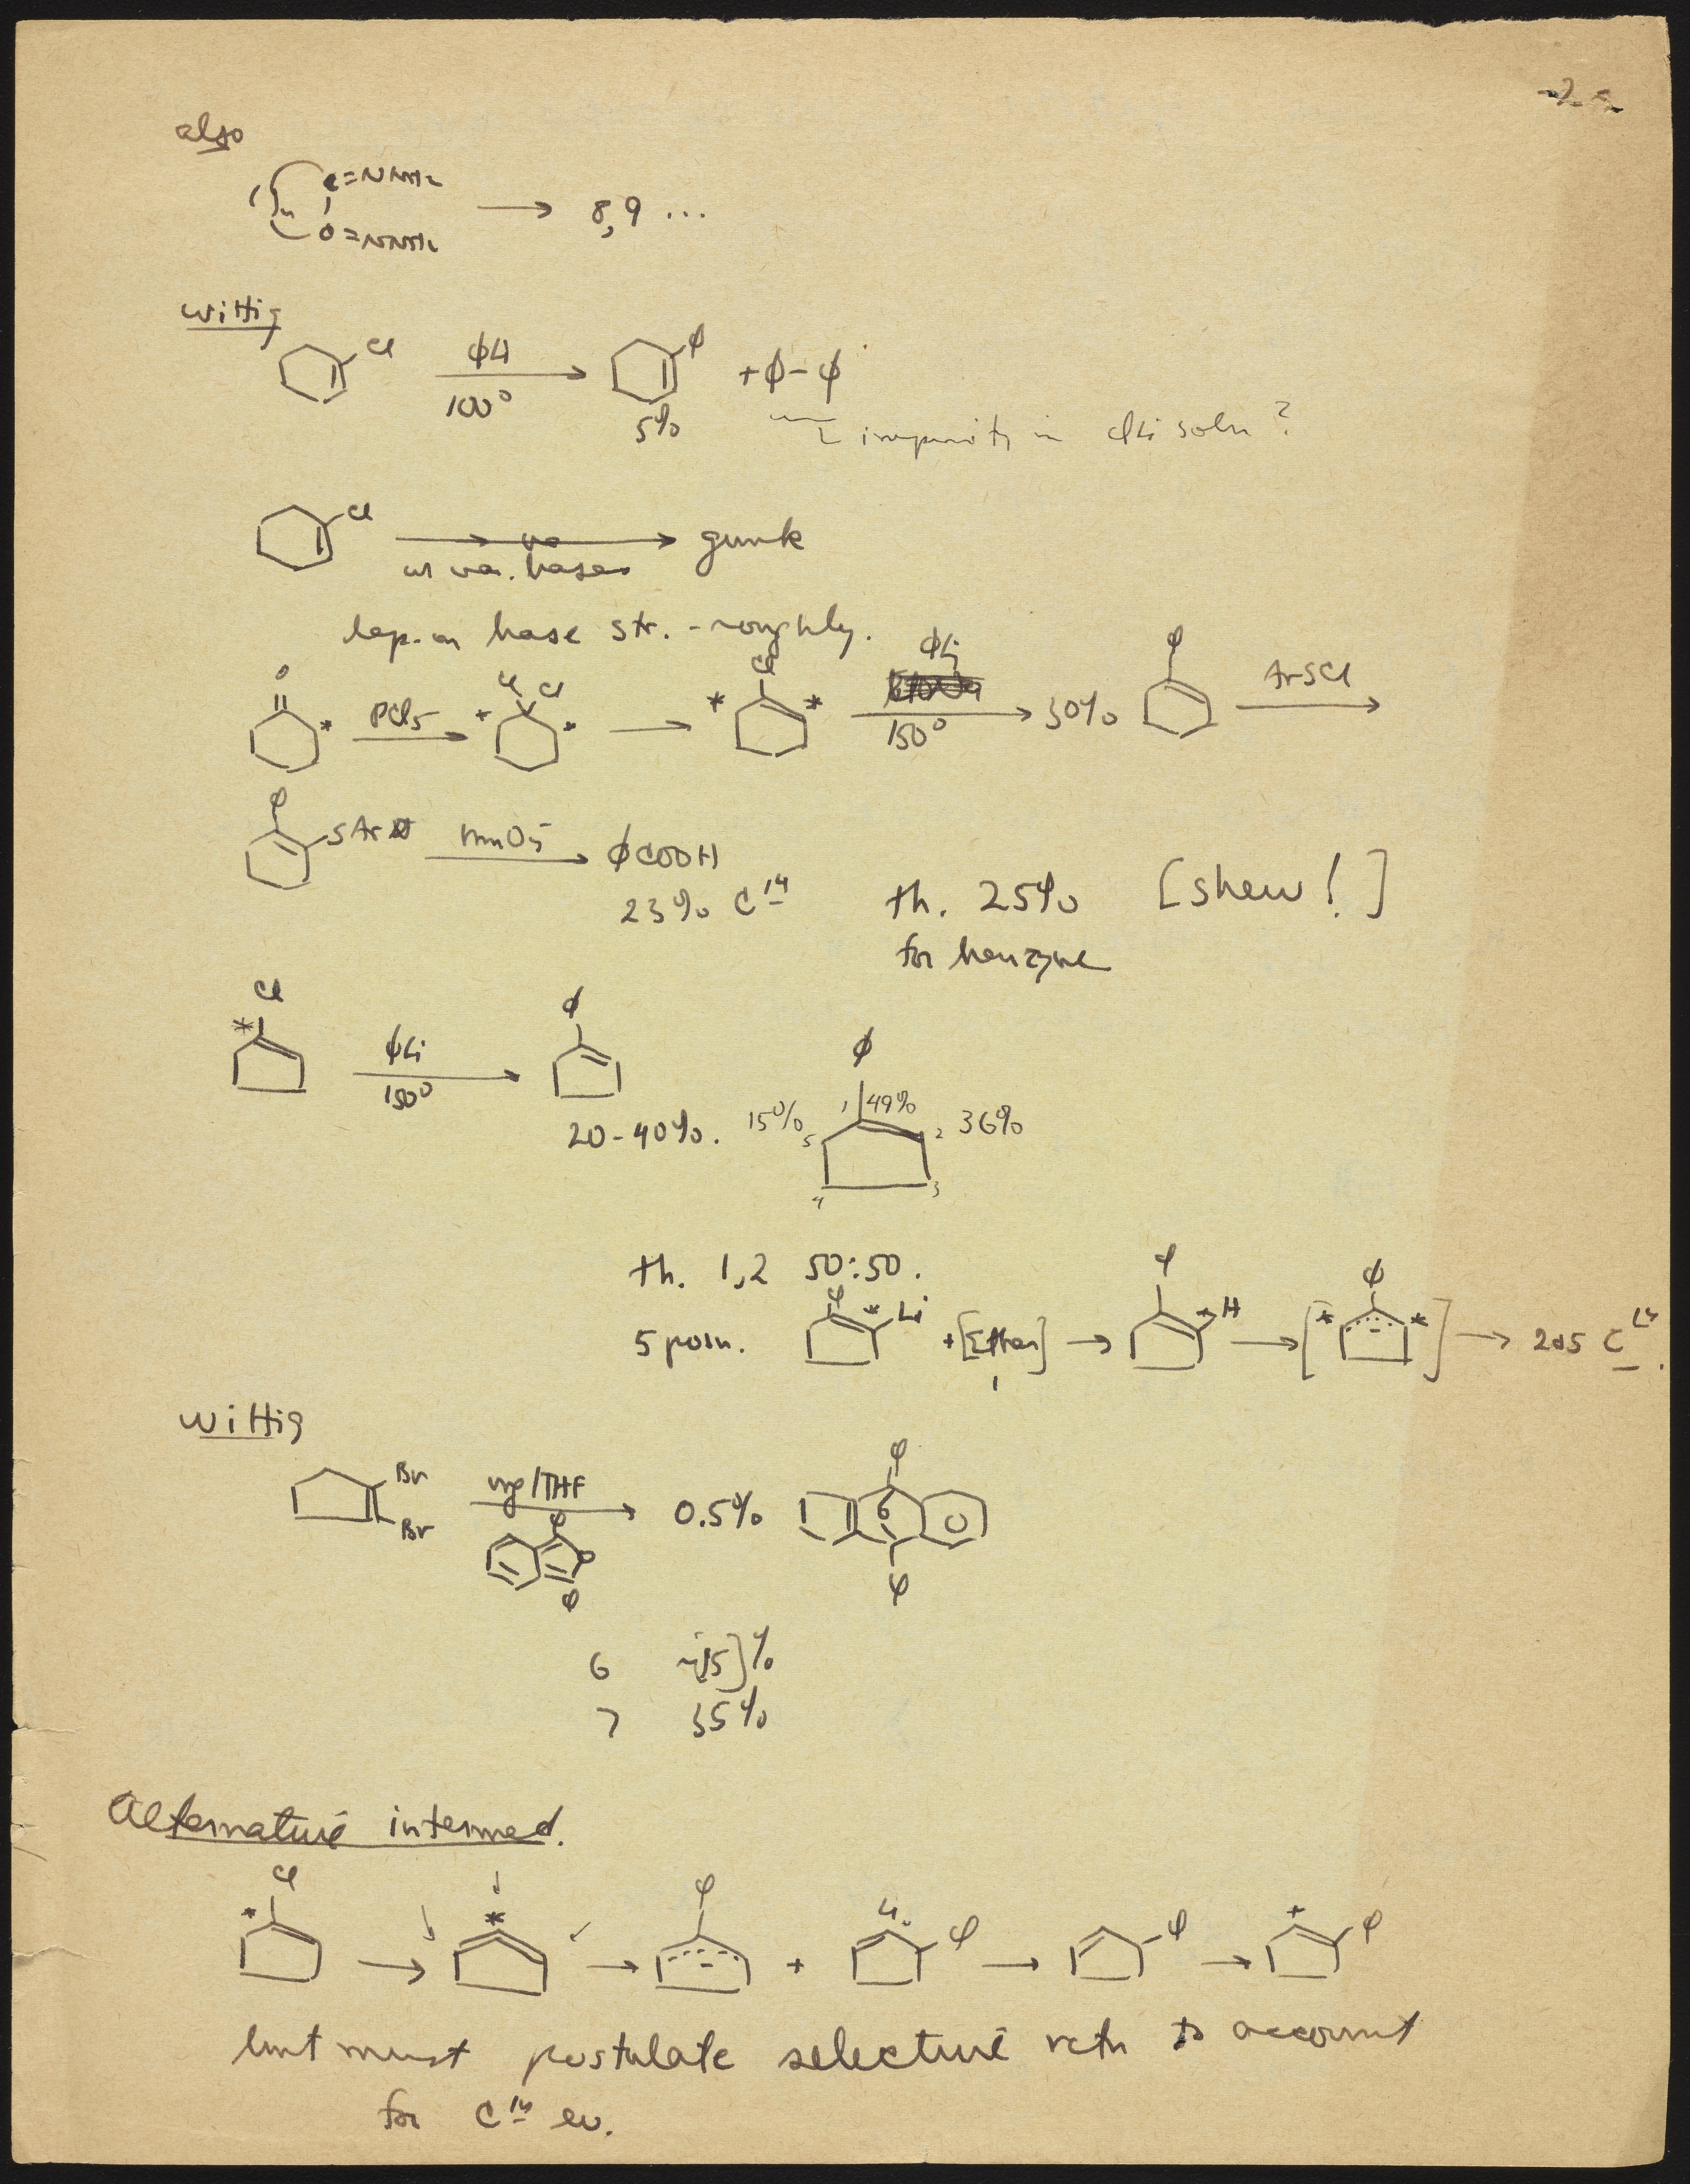 also
C=NNH2
C=NNH2 → 8, 9 ...
Wittig
Cl ϕLi 100° → ϕ 5% + ϕ-ϕ
impurity in ϕLi soln?
Cl → gunk
w var. bases
dep. on base str. - roughly.
O * PCl5 → * Cl Cl * → * Cl * ϕLi 150° → 30% ϕ ArSCl →
ϕ SAr MnO4- → ϕCOOH
23% C14 th. 25% [shew!]
for benzyne
Cl * ϕLi 150° → ϕ
20-40%. 15% 5 ϕ 1 49% 2 36%
4 3
th. 1,2 50:50.
5 posn. ϕ * Li + [Ether] → ϕ * H → [* ϕ * -] → 2+5 C14.
Wittig
Br Br Mg/THF → 0.5% ϕ O ϕ
ϕ O ϕ
6 ~[15]%
7 35%
Alternative intermed.
* Cl → * → ϕ - + ϕ → ϕ → * ϕ
but must postulate selective rctn to account
for C14 ev.